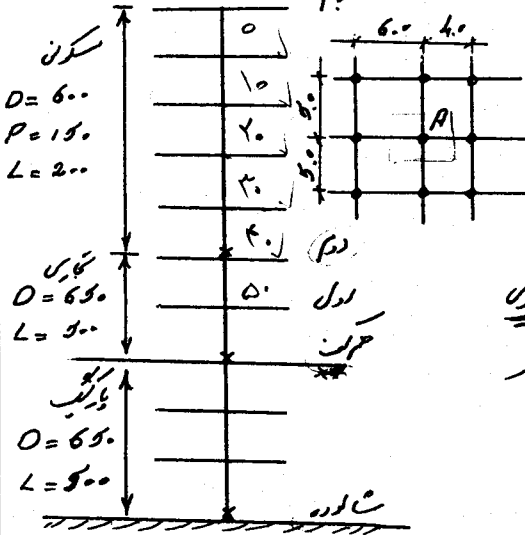 مسکونی
D = 600
P = 150
L = 200
تجاری
D = 650
L = 500
پارکینگ
D = 650
L = 500
۰
۱۰
۲۰
۳۰
۴۰
۵۰
دوم
اول
همکف
شالوده
6.0 4.0
5.0
5.0
A